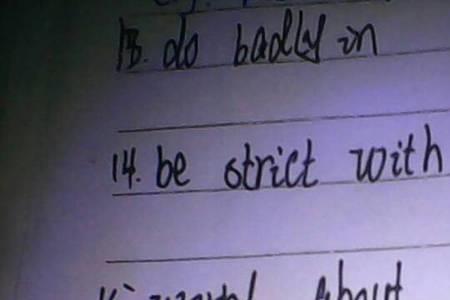 13. do badly in
14. be strict with
about